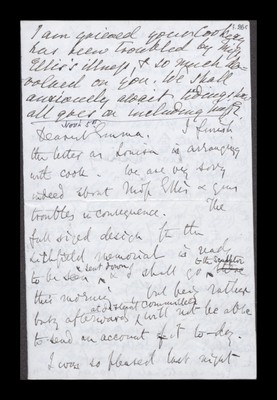 I am grieved your Cook
has been troubled by Miss
Ellis's illness, & so much de-
volved on you. We shall
anxiously await tidings how
all goes on including
Dearest Emma. I finish
the letter as Louisa is arranging
with cook. We are very sorry
indeed about Miss Ellis & your
troubles in consequence. The
full sized design for the
Lichfield memorial is ready
to be seen & sent down
& I shall go
this morning but being rather
busy afterwards I will not be able
to send an account of it to-day.
I was so pleased last night